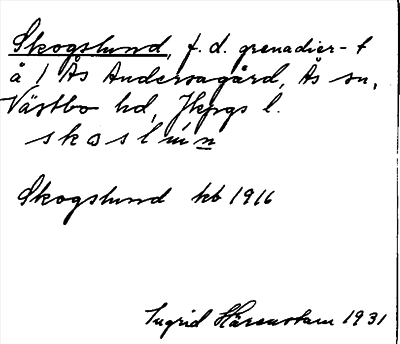 Skogslund, f. d. grenadier-t
å 1 Ås Andersagård, Ås sn,
Västbo hd, Jkpgs l.
skoslun
Skogslund kb 1916
Ingrid Härenstam 1931